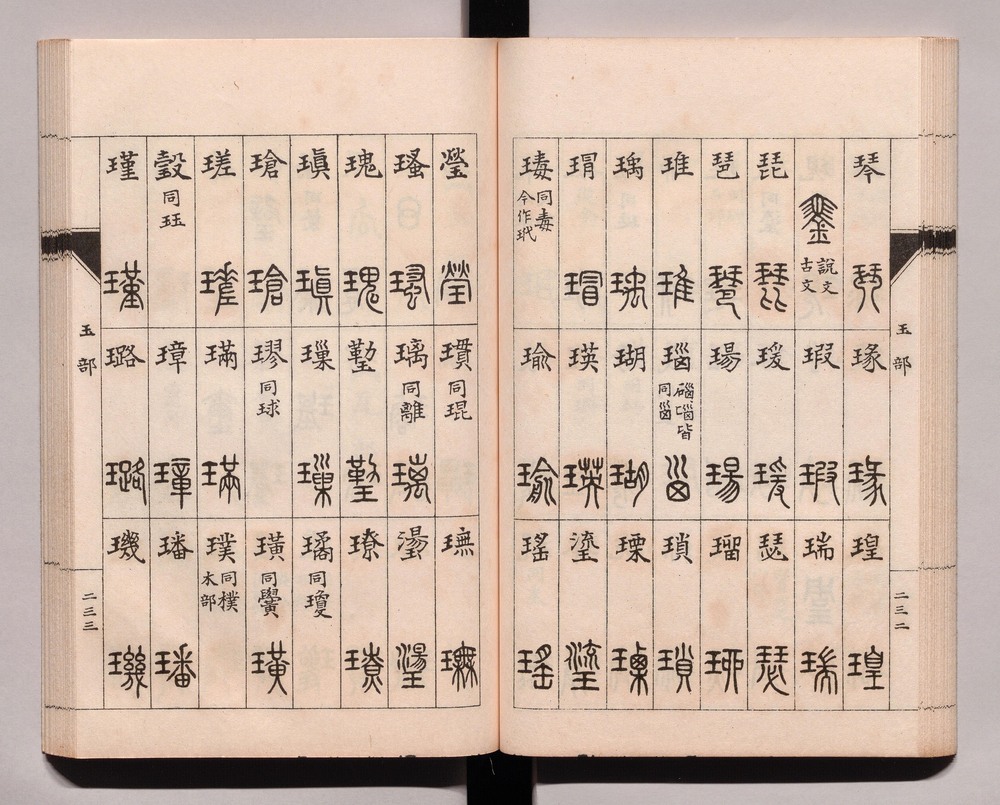 玉部
二三二
琴
說文
古文
琵
琶
琟
瑀
瑁
瑇 同毒
今作玳
瑑
瑕
瑗
瑒
瑙
瑚
瑛
瑜
瑝
瑞
瑟
瑠
瑣
瑮
瑬
瑤
瑩
瑵
瑰
瑱
瑲
瑳
瑴 同珏
瑾
瑻 同琨
璃 同離
璅
璆 同球
璊
璋
璐
璑
璗
璙
璚 同瓊
璜 同黌
璞 同樸
木部
璠
璣
玉部
二三三